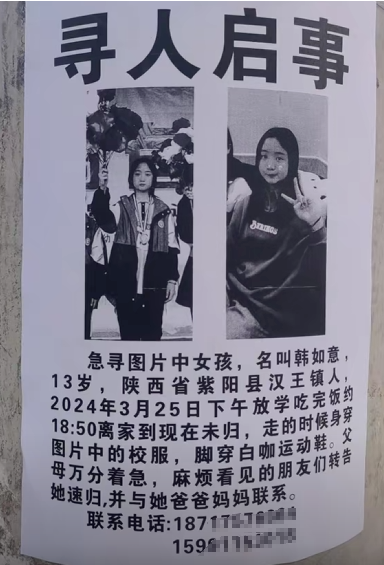 寻人启事
急寻图片中女孩，名叫韩如意，
13岁，陕西省紫阳县汉王镇人，
2024年3月25日下午放学吃完饭约
18:50离家到现在未归，走的时候身穿
图片中的校服，脚穿白咖运动鞋。父
母万分着急，麻烦看见的朋友们转告
她速归，并与她爸爸妈妈联系。
联系电话: